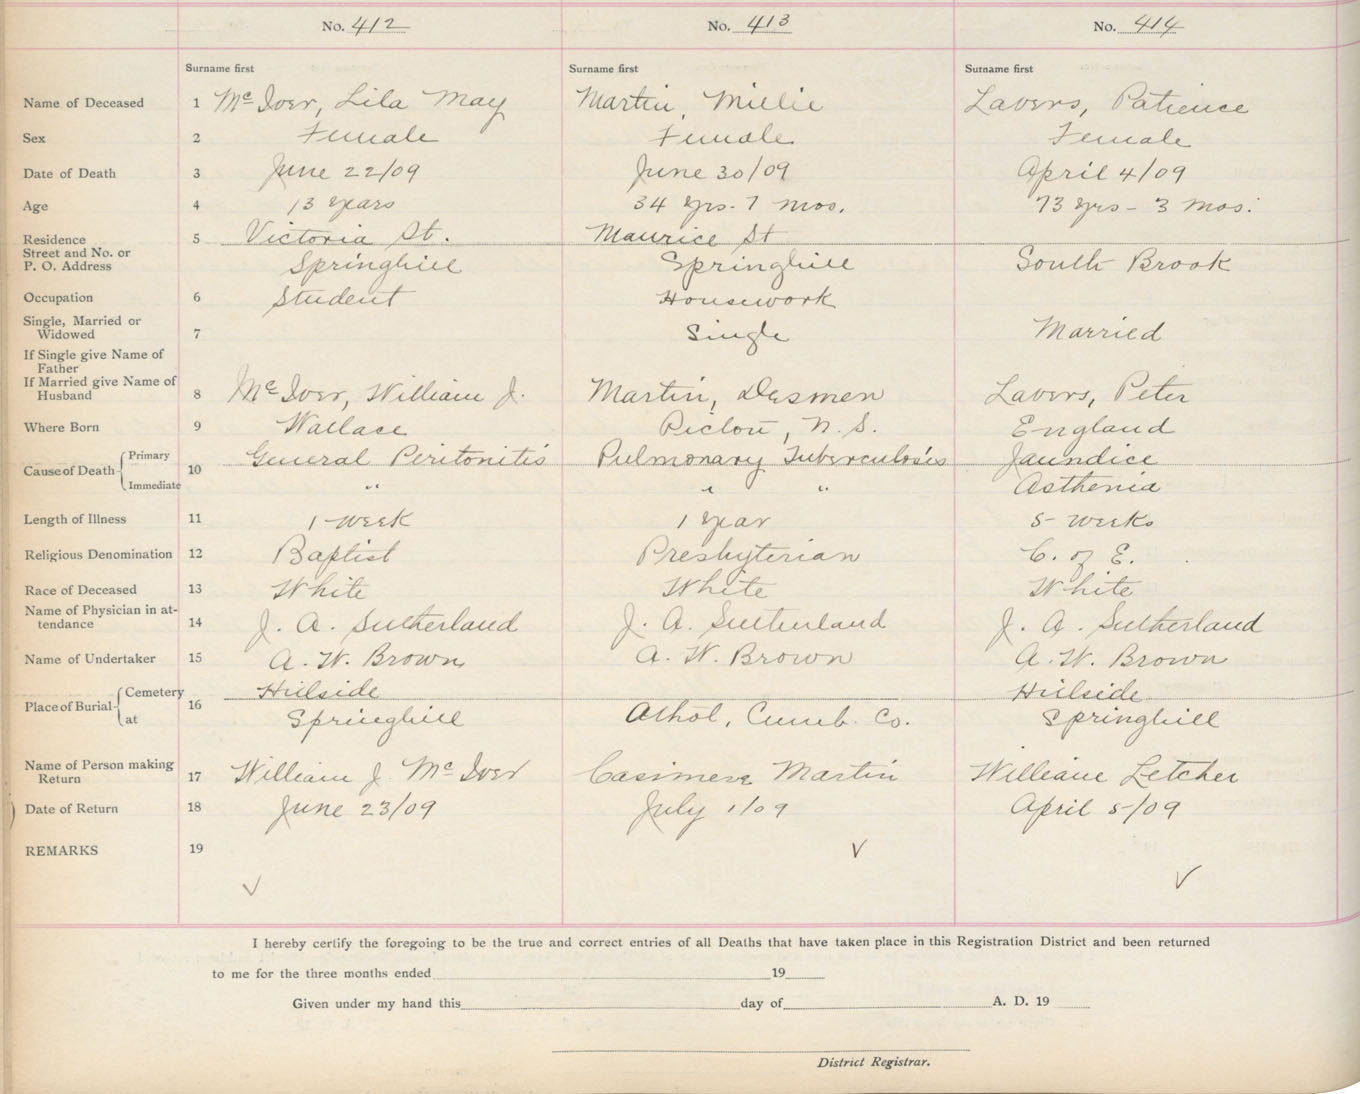 No. 412 No. 413 No. 414
Surname first Surname first Surname first
Name of Deceased 1 McIver, Lila May Martin, Millie Lavers, Patience
Sex 2 Female Female Female
Date of Death 3 June 22/09 June 30/09 April 4/09
Age 4 13 years 34 yrs-7 mos. 73 yrs-3 mos.
Residence 5 Victoria St. Maurice St
Street and No. or
P. O. Address Springhill Springhill South Brook
Occupation 6 Student Housework
Single, Married or
Widowed 7 Single Married
If Single give Name of
Father
If Married give Name of
Husband 8 McIver, William J. Martin, Desmen Lavers, Peter
Where Born 9 Wallace Pictou, N. S. England
Cause of Death Primary 10 General Peritonitis Pulmonary Tuberculosis Jaundice
Immediate " " " Asthenia
Length of Illness 11 1-week 1 year 5 weeks
Religious Denomination 12 Baptist Presbyterian C. of E.
Race of Deceased 13 White White White
Name of Physician in at-
tendance 14 J. A. Sutherland J. A. Sutherland J. A. Sutherland
Name of Undertaker 15 A. W. Brown A. W. Brown A. W. Brown
Place of Burial Cemetery 16 Hillside Hillside
at Springhill Athol, Cumb. Co. Springhill
Name of Person making
Return 17 William J. McIver Casimere Martin William Letcher
Date of Return 18 June 23/09 July 1/09 April 5/09
REMARKS 19
I hereby certify the foregoing to be the true and correct entries of all Deaths that have taken place in this Registration District and been returned
to me for the three months ended 19
Given under my hand this day of A. D. 19
District Registrar.